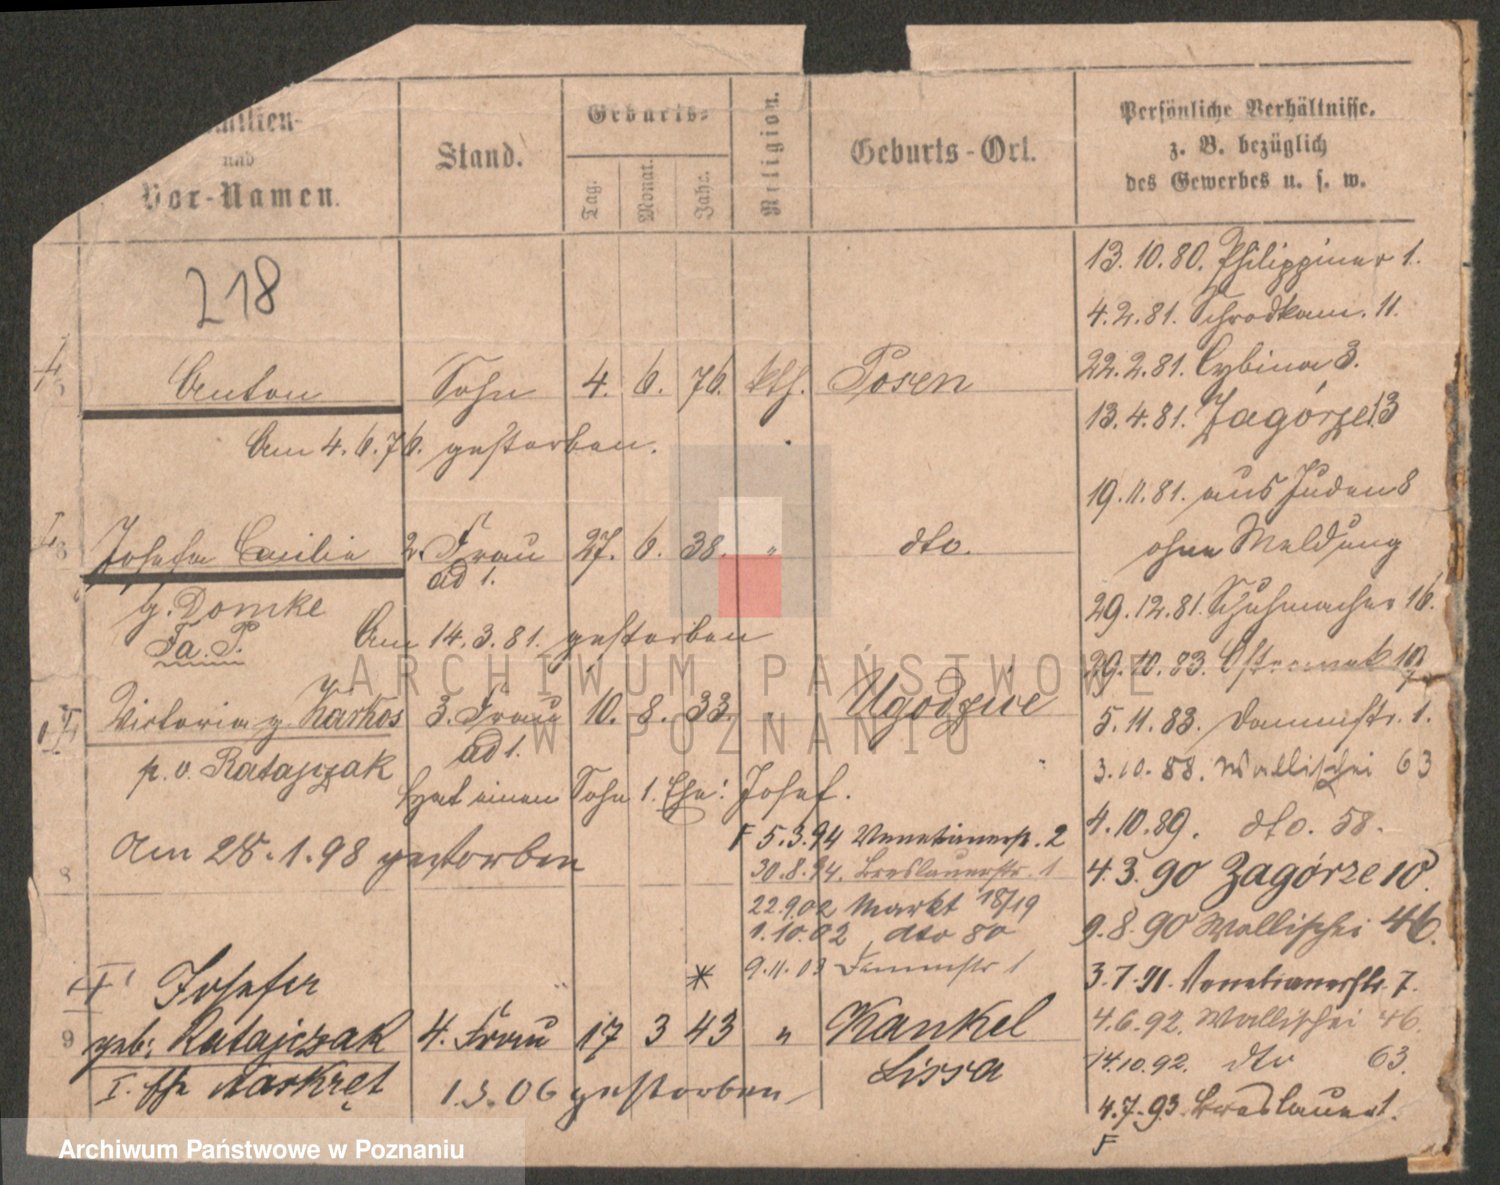 Familien-
und
Vor-Namen.
Stand.
Geburts-
Tag.
Monat.
Jahr.
Religion.
Geburts-Ort.
Persönliche Verhältnisse.
z. B. bezüglich
des Gewerbes u. s. w.
218
Anton Sohn 4. 6. 76. kth. Posen
Am 4.6.76. gestorben.
Josefa Cacilie 2. Frau 27. 6. 38. " dto.
ad 1.
g. Domke
Fa. P.
Am 14.3.81. gestorben
Victoria g. Karkos 3. Frau 10. 8. 33. " Ugodziwe
ad 1.
p. v. Ratajczak
Hat einen Sohn 1. Ehe: Josef.
Am 28.1.98 gestorben
8
F 5.3.94 Venetianerstr. 2
30.8.94. Breslauerstr. 1
22.9.02 Markt 18/19
1.10.02 dto 80
9.11.03 Dammstr 1
Josefa
9 geb: Ratajczak 4. Frau 17 3 43 " Kankel
Lissa
I. Ehe Naskręt
1.3.06 gestorben
13.10.80. Philippiner 1.
4.2.81. Schrodkam. 11.
22.2.81. Cybina 3.
13.4.81. Zagórze 13
19.11.81. aus Juden 8
ohne Meldung
29.12.81. Schuhmacher 16.
29.10.83.
5.11.83. Dammstr. 1.
3.10.88. Wallischei 63
4.10.89. dto. 58.
4.3.90 Zagórze 10.
9.8.90 Wallischei 46.
3.7.91. Venetianerstr. 7.
4.6.92. Wallischei 46.
14.10.92. dto 63.
4.7.93. Breslauer 1.
F
ARCHIWUM PAŃSTWOWE
W POZNANIU
Archiwum Państwowe w Poznaniu